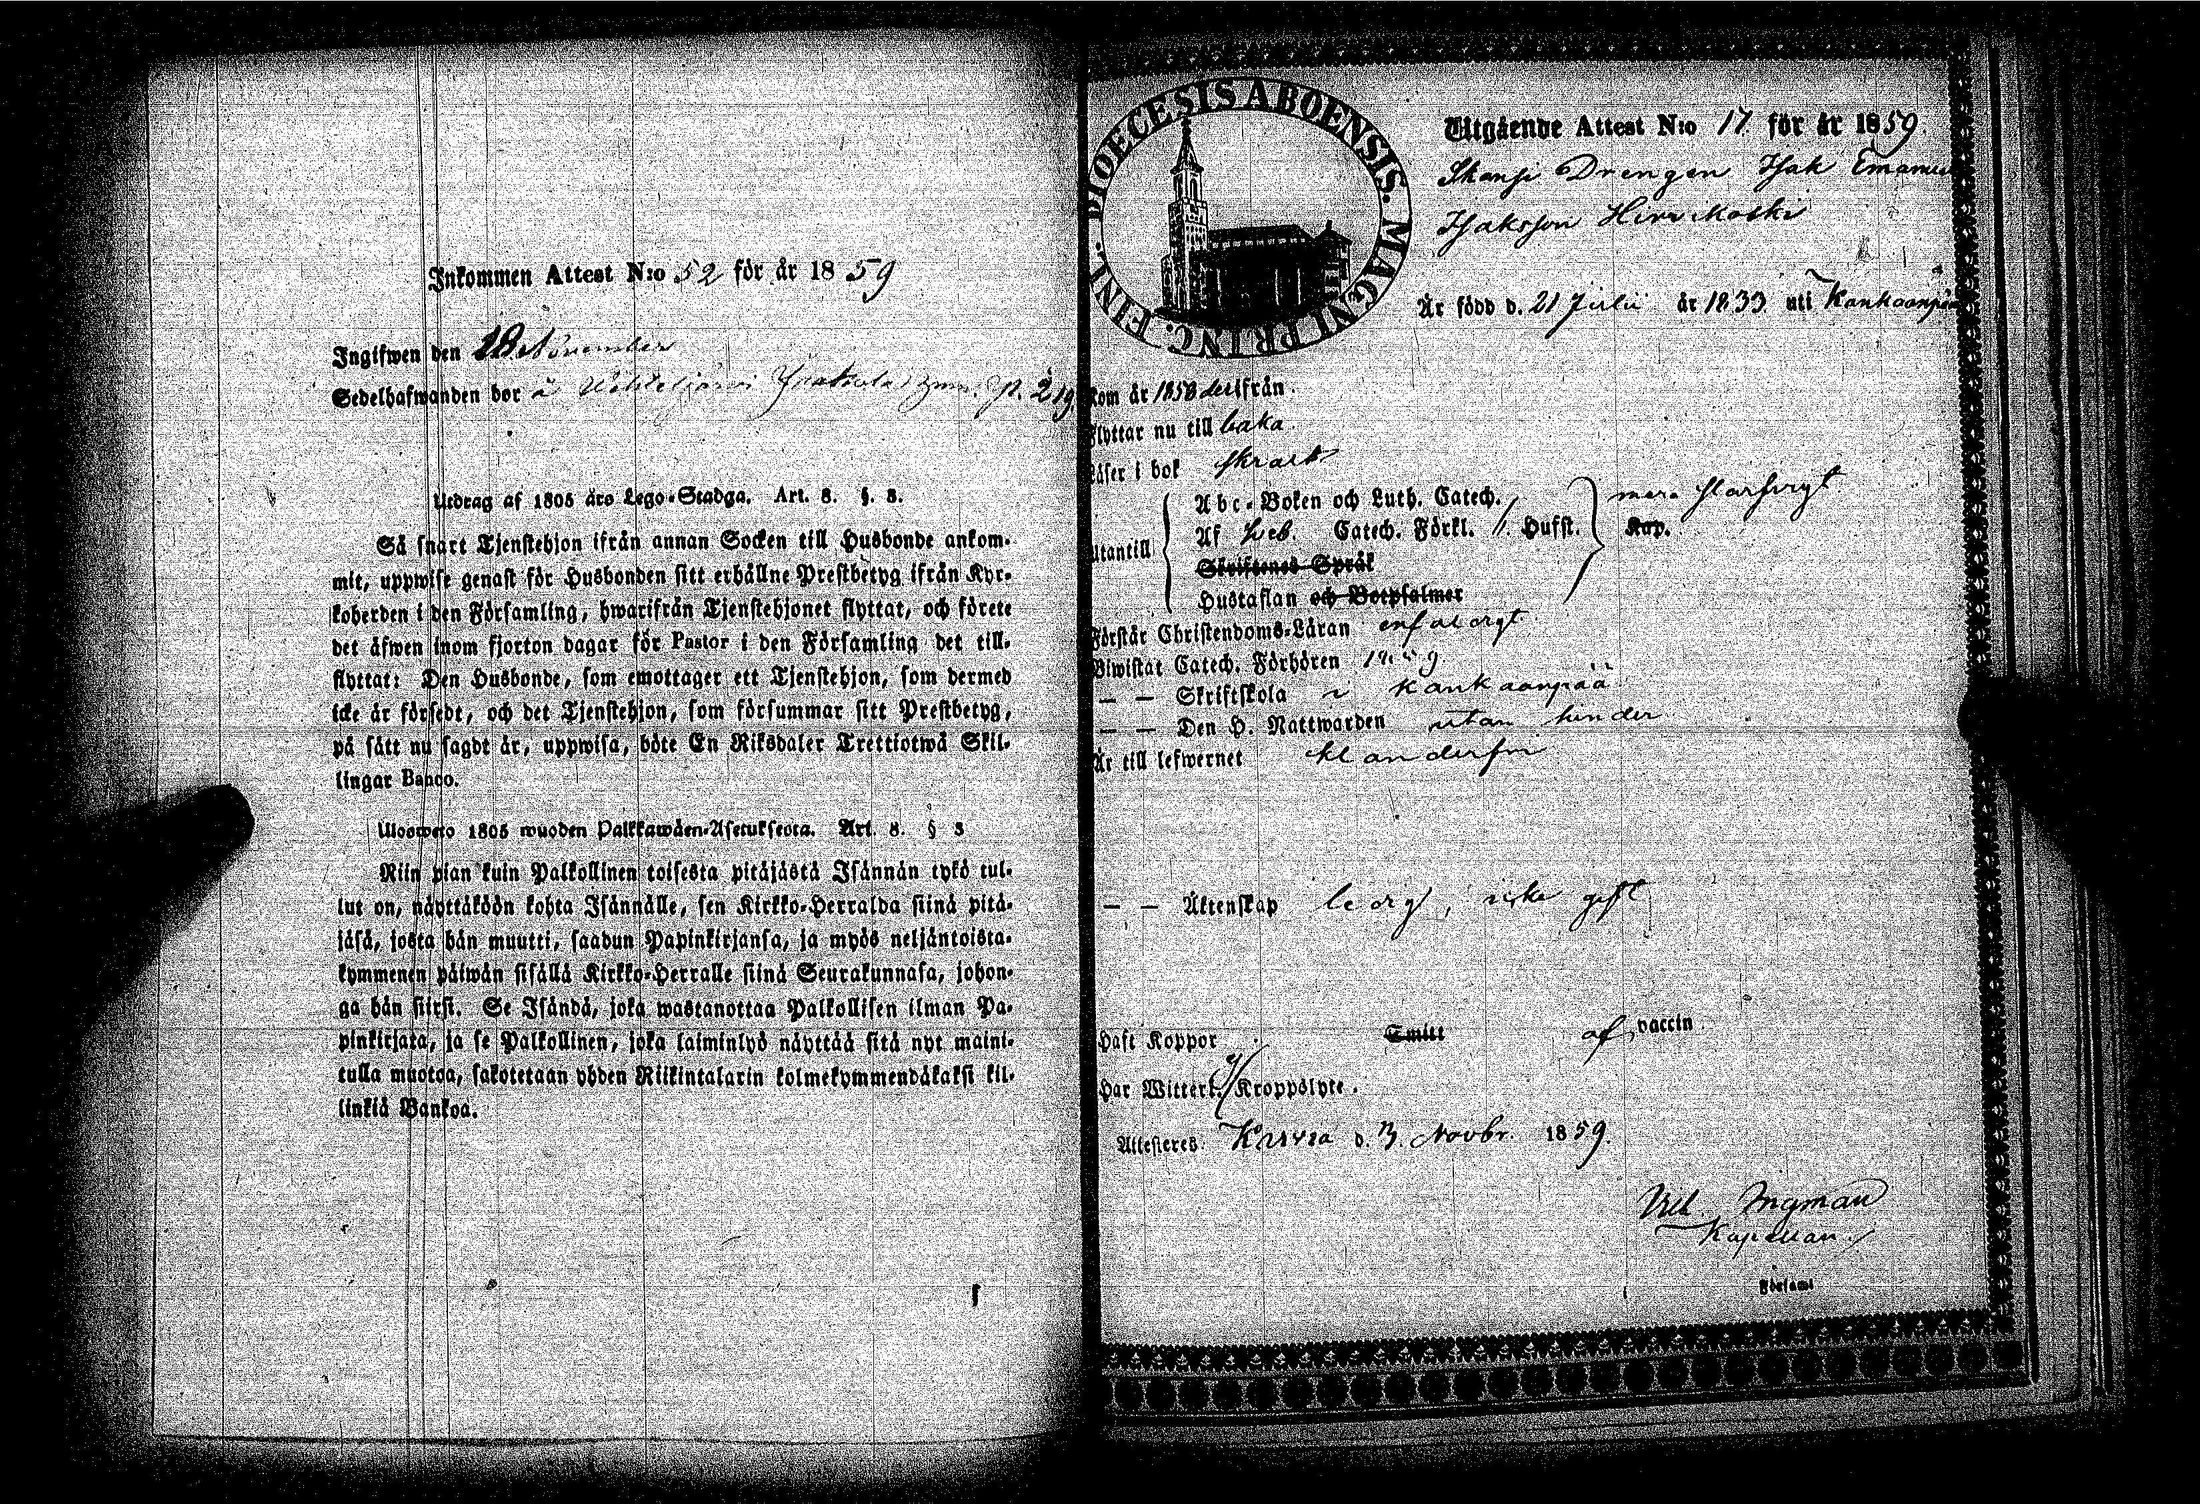 Inkommen Attest N:o 52 för år 1859
Ingifwen den 18 November
Sedelhafwanden bor å
Utdrag af 1805 års Lego-Stadga. Art. 8. §. 3.
Så snart Tjenstehjon ifrån annan Socken till Husbonde ankom-
mit, uppwise genast för Husbonden sitt erhållne Prestbetyg ifrån Kyr-
koherden i den Församling, hwarifrån Tjenstehjonet flyttat, och förete
det äfwen inom fjorton dagar för Pastor i den Församling det till-
flyttat: Den Husbonde, som emottager ett Tjenstehjon, som dermed
icke är försedt, och det Tjenstehjon, som försummar sitt Prestbetyg,
på sätt nu sagdt är, uppwisa, böte En Riksdaler Trettiotwå Skil-
lingar Banco.
Ulosweto 1805 wuoden Palkkawäen-Asetuksesta. Art. 8. § 3
Niin pian kuin Palkollinen toisesta pitäjästä Isännän tykö tul-
lut on, näyttäköön kohta Isännälle, sen Kirkko-Herralda siinä pitä-
jäsä, josta hän muutti, saadun Papinkirjansa, ja myös neljäntoista-
kymmenen päiwän sisällä Kirkko-Herralle siinä Seurakunnasa, johon-
ga hän siirsi. Se Isändä, joka wastanottaa Palkollisen ilman Pa-
pinkirjata, ja se Palkollinen, joka laiminlyö näyttää sitä nyt maini-
tulla muotoa, sakotetaan yhden Riikintalarin kolmekymmendäkaksi kil-
linkiä Bankoa.
DIOECESIS ABOENSIS. MAGNI PRINC. FINL.
Utgående Attest N:o 17 för år 1859.
Drengen Isak Emanuel
Isaksson Hirvikoski
Är född d. 21 Julii år 1833 uti Kankaanpää
Kom år 1858 derifrån.
Flyttar nu till baka.
Läser i bok skralt
Utantill
Abc-Boken och Luth. Catech.
Af Catech. Förkl. Hufst.
Skriftenes Språk
Hustaflan och Botpsalmer
mera Kap.
Förstår Christendoms-Läran
Biwistat Catech. Förhören 1859.
— — Skriftskola i Kankaanpää
— — Den H. Nattwarden utan hinder
Är till lefwernet klanderfri
— — Äktenskap ledig, icke gift
Haft Koppor Smitt af vaccin.
Har Witterl. Kroppslyte.
Attesteres. Karvia d. 3. Novbr. 1859.
Vilh. Ingman
Kapellan.
Församl